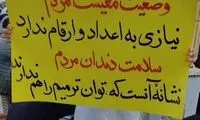 وضعیت معیشت مردم
نیازی به اعداد و ارقام ندارد
سلامت دندان مردم
نشانه آنست که توان ترمیم را هم ندارند